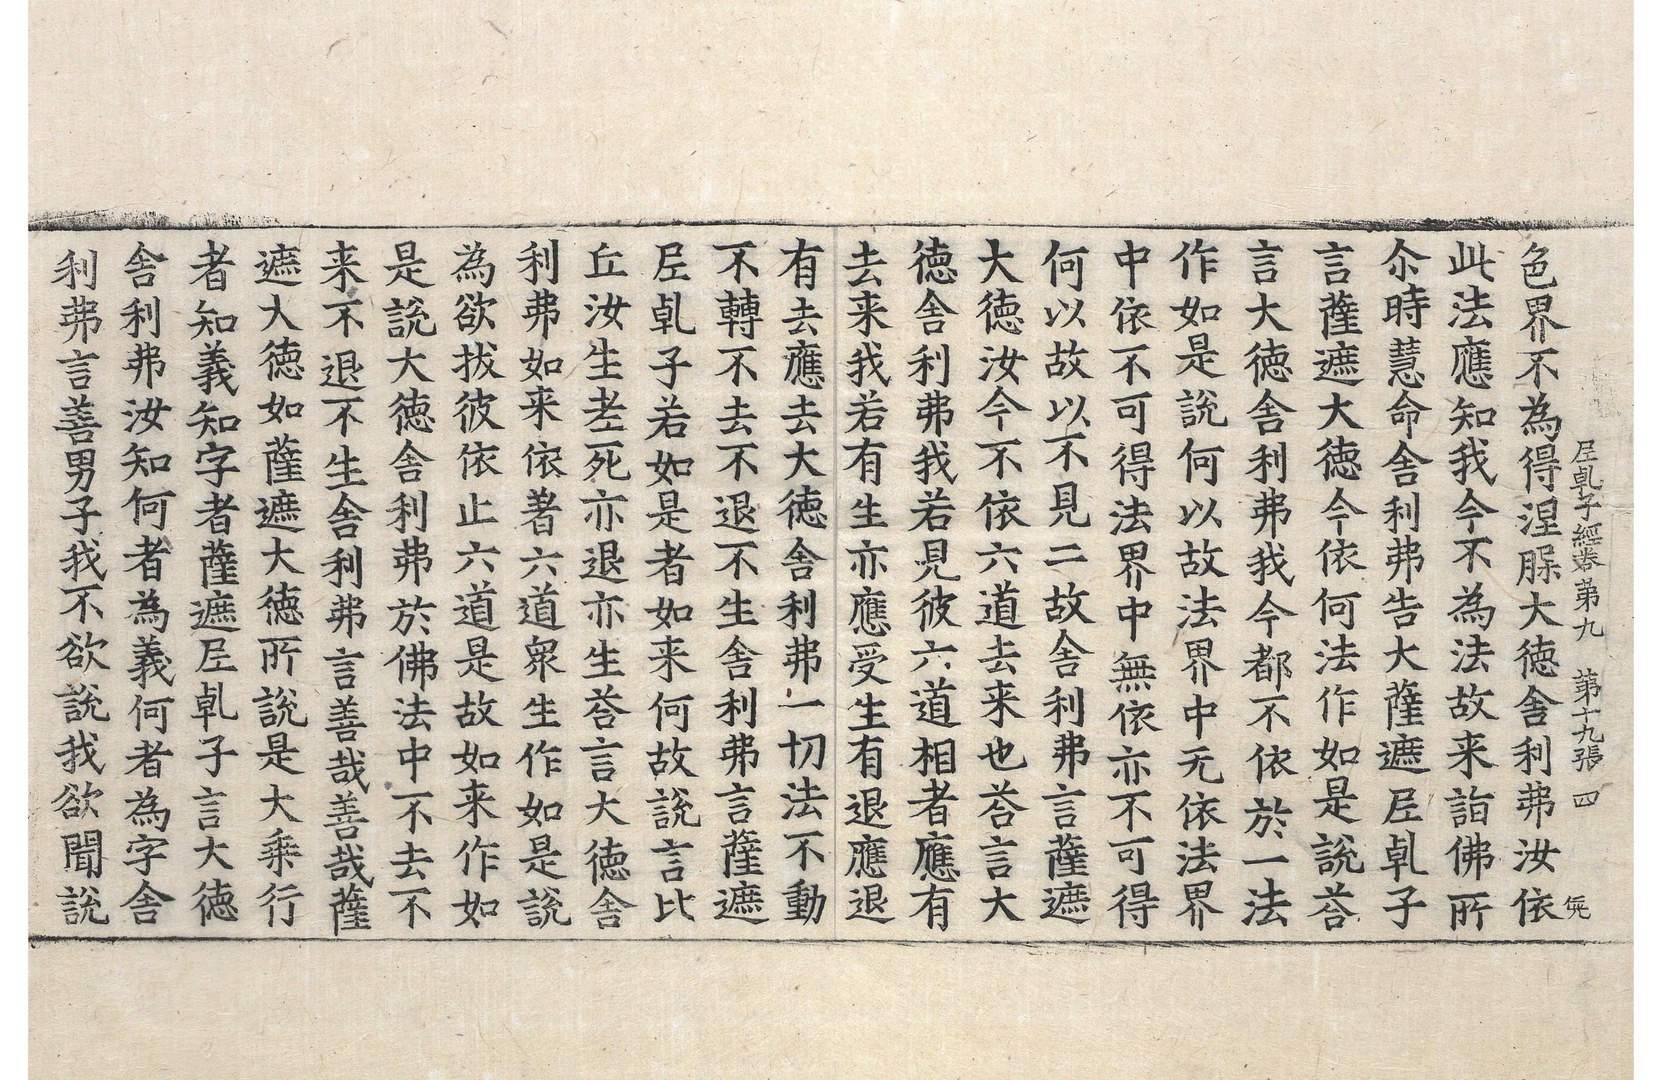 尼乹子經卷第九 第十九張 四
色界不為得涅槃大德舍利弗汝依
此法應知我今不為法故来詣佛所
尒時慧命舍利弗告大薩遮尼乹子
言薩遮大德今依何法作如是說荅
言大德舍利弗我今都不依於一法
作如是說何以故法界中无依法界
中依不可得法界中無依亦不可得
何以故以不見二故舍利弗言薩遮
大德汝今不依六道去来也荅言大
德舍利弗我若見彼六道相者應有
去来我若有生亦應受生有退應退
有去應去大德舍利弗一切法不動
不轉不去不退不生舍利弗言薩遮
尼乹子若如是者如来何故說言比
丘汝生老死亦退亦生荅言大德舍
利弗如来依著六道衆生作如是說
為欲拔彼依止六道是故如来作如
是說大德舍利弗於佛法中不去不
来不退不生舍利弗言善哉善哉薩
遮大德如薩遮大德所說是大乘行
者知義知字者薩遮尼乹子言大德
舍利弗汝知何者為義何者為字舍
利弗言善男子我不欲說我欲聞說